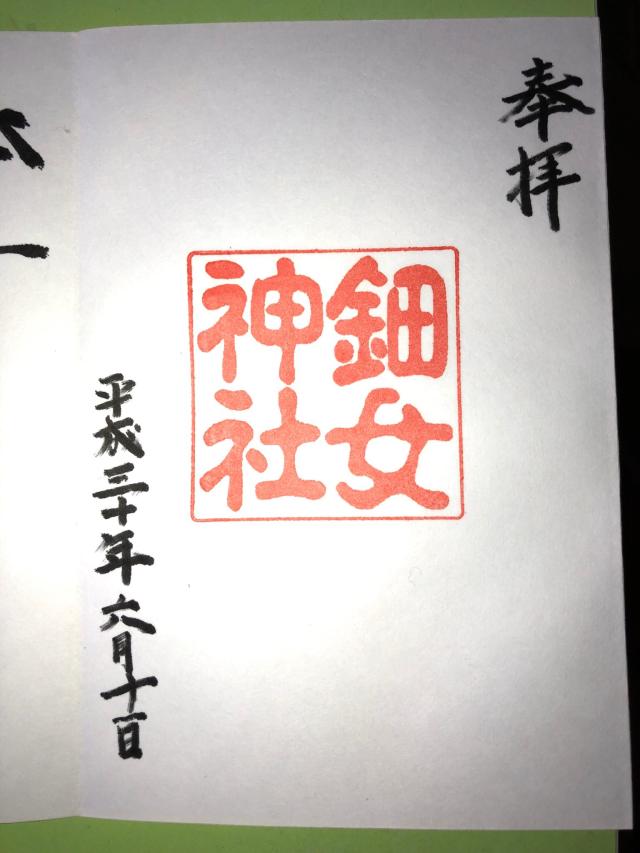 奉拝
鈿女
神社
平成三十年六月十一日